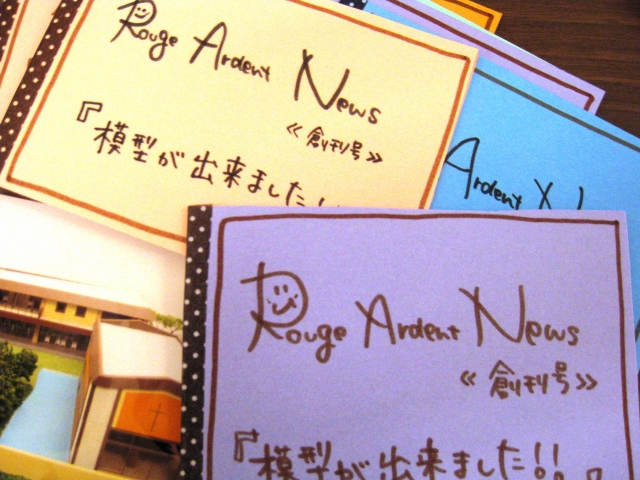 Rouge Ardent News
≪創刊号≫
『模型が出来ました!!
Ardent N
Rouge Ardent News
≪創刊号≫
『模型が出来ました!!』